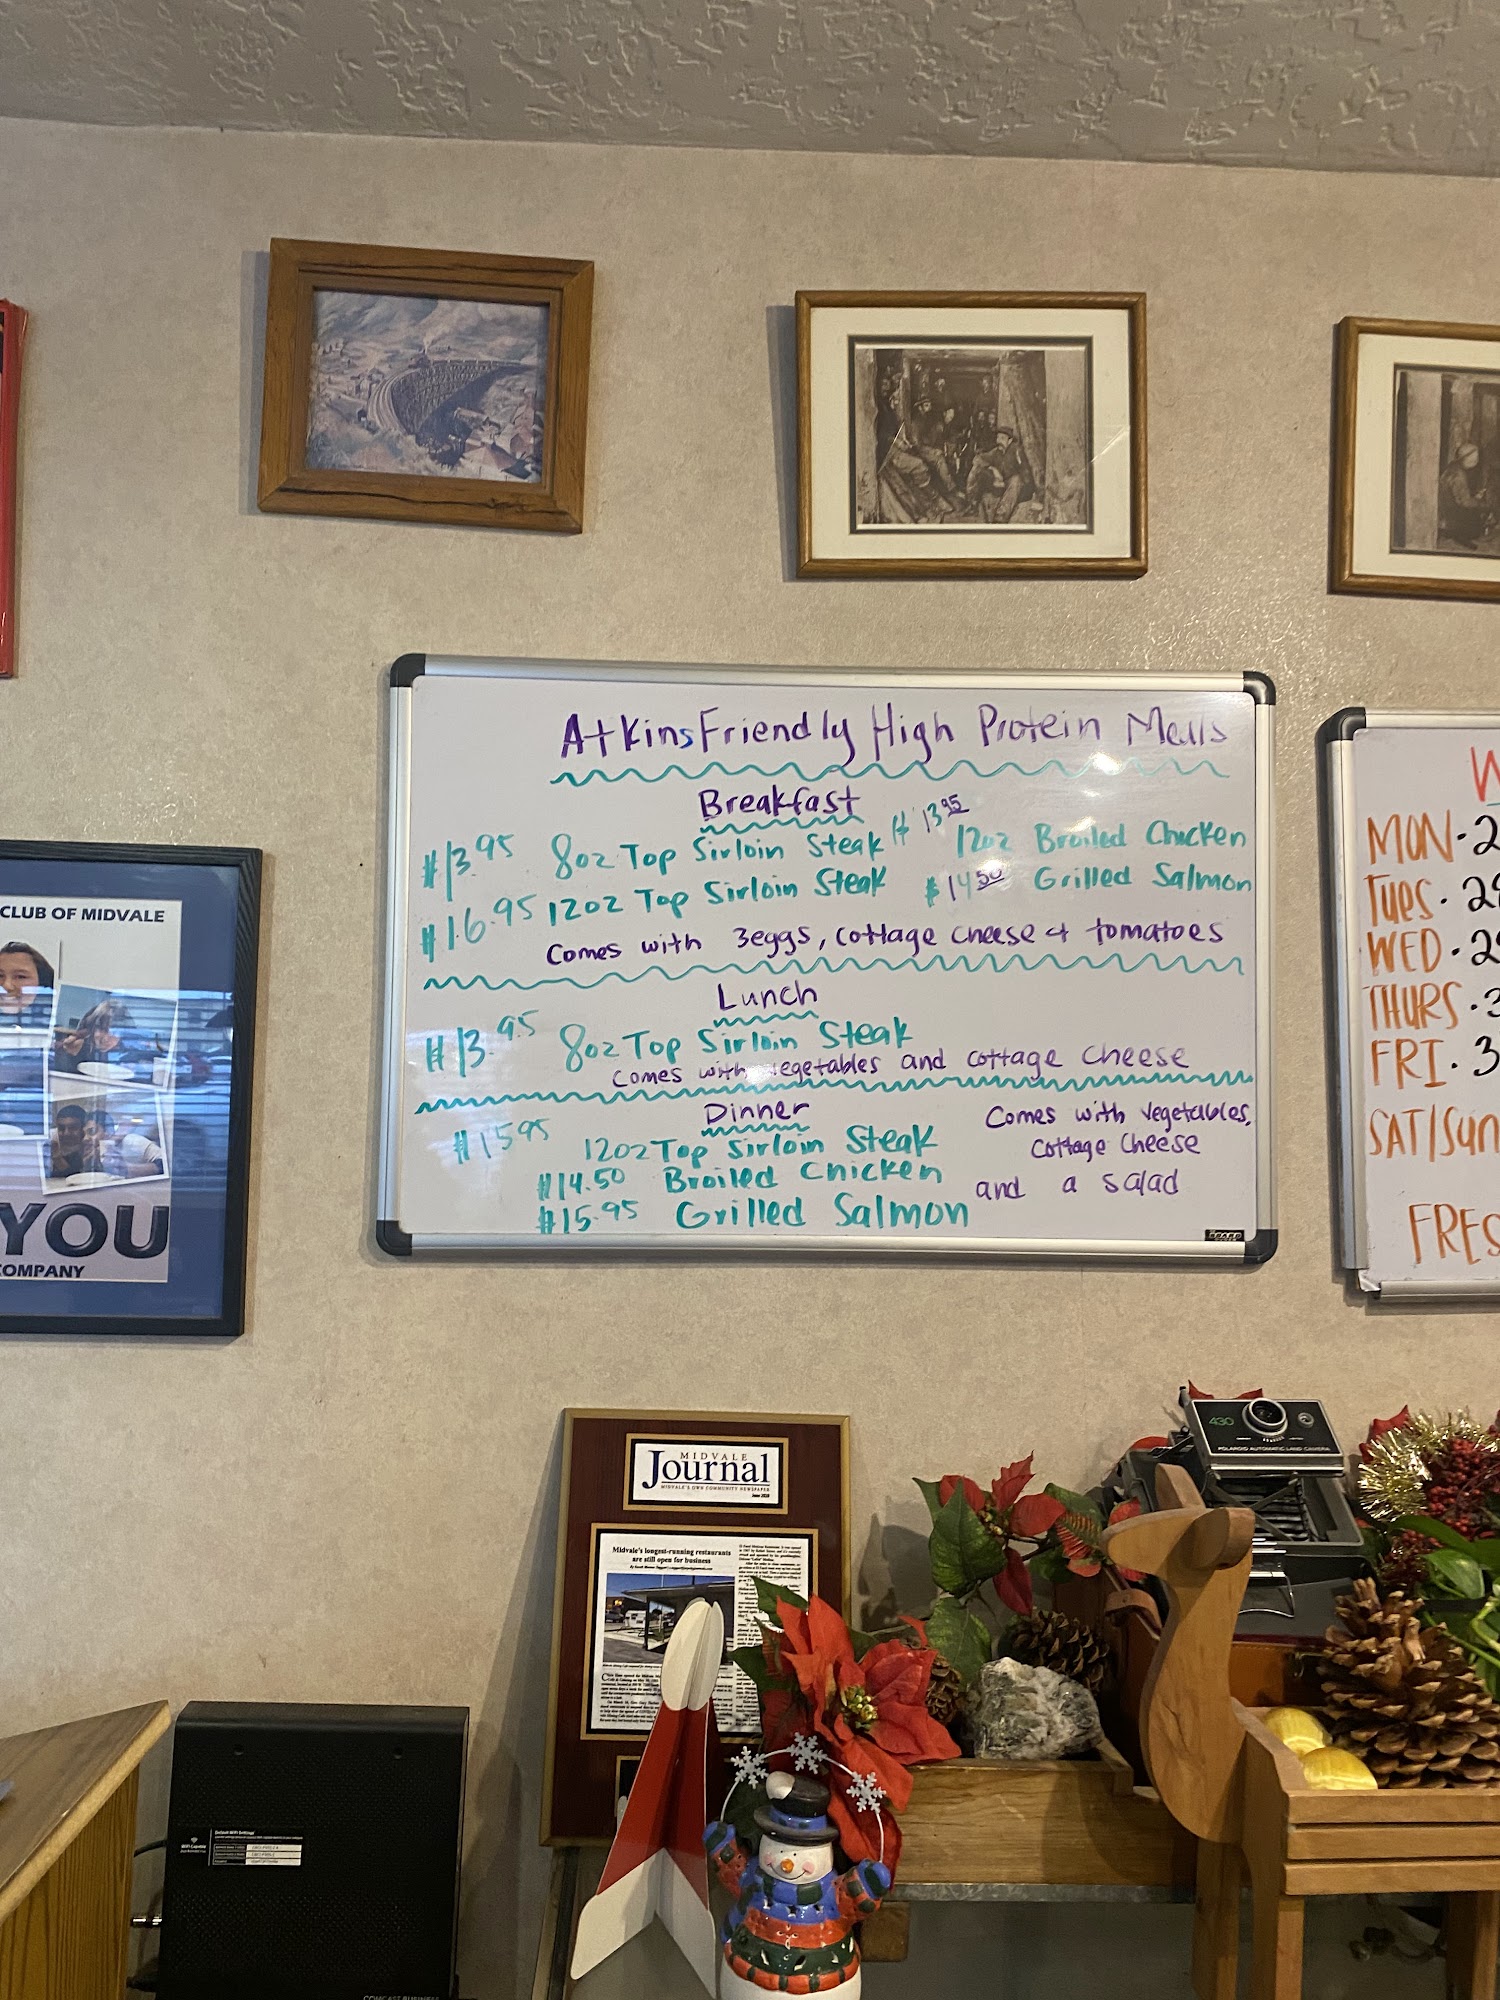 CLUB OF MIDVALE
YOU
COMPANY
Atkins Friendly High Protein Meals
Breakfast
$13.95 8oz Top Sirloin Steak $13.95 12oz Broiled Chicken
$16.95 12oz Top Sirloin Steak $14.50 Grilled Salmon
Comes with 3eggs, cottage cheese & tomatoes
Lunch
$13.95 8oz Top Sirloin Steak
Comes with vegetables and cottage cheese
Dinner
$15.95 12oz Top Sirloin Steak
$14.50 Broiled Chicken
$15.95 Grilled Salmon
Comes with vegetables,
cottage cheese
and a salad
BOARD
W
MON. 2
Tues. 28
WED. 29
THURS. 3
FRI. 3
SAT/Sun
FRES
MIDVALE
Journal
MIDVALE'S OWN COMMUNITY NEWSPAPER
Midvale's longest-running restaurants
are still open for business
430
POLAROID AUTOMATIC LAND CAMERA
WiFi Capable
Default WiFi Settings
COMCAST BUSINESS